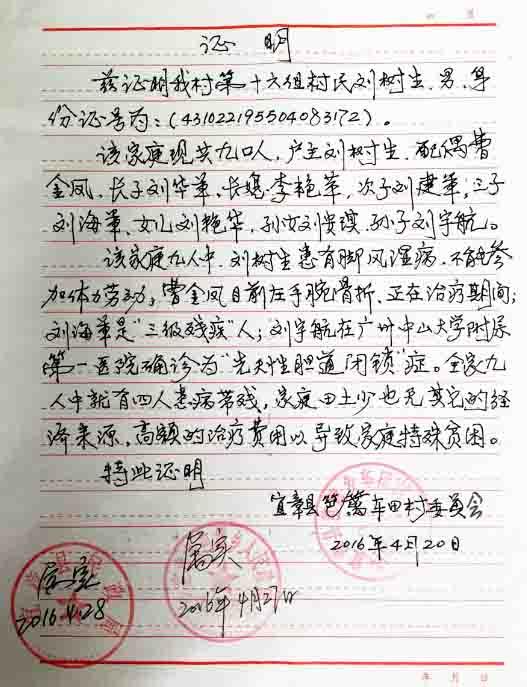 证 明
兹证明我村第十六组村民刘树生、男、身
份证号为：(431022195504083172)。
该家庭现共九口人，户主刘树生、配偶曹
金凤、长子刘华军、长媳李艳苹，次子刘建军；三子
刘海军、女儿刘艳华，孙女刘安琪、孙子刘宇航。
该家庭九人中，刘树生患有脚风湿病、不能参
加体力劳动；曹金凤目前左手腕骨折、正在治疗期间；
刘海军是"三级残疾"人；刘宇航在广州中山大学附属
第一医院确诊为"先天性胆道闭锁"症。全家九
人中就有四人患病带残，家庭田土少也无其它的经
济来源，高额的治疗费用以导致家庭特殊贫困。
特此证明
宜章县笆篱车田村委员会
2016年4月20日
属实
2016年4月27日
属实
2016.4.28
年 月 日